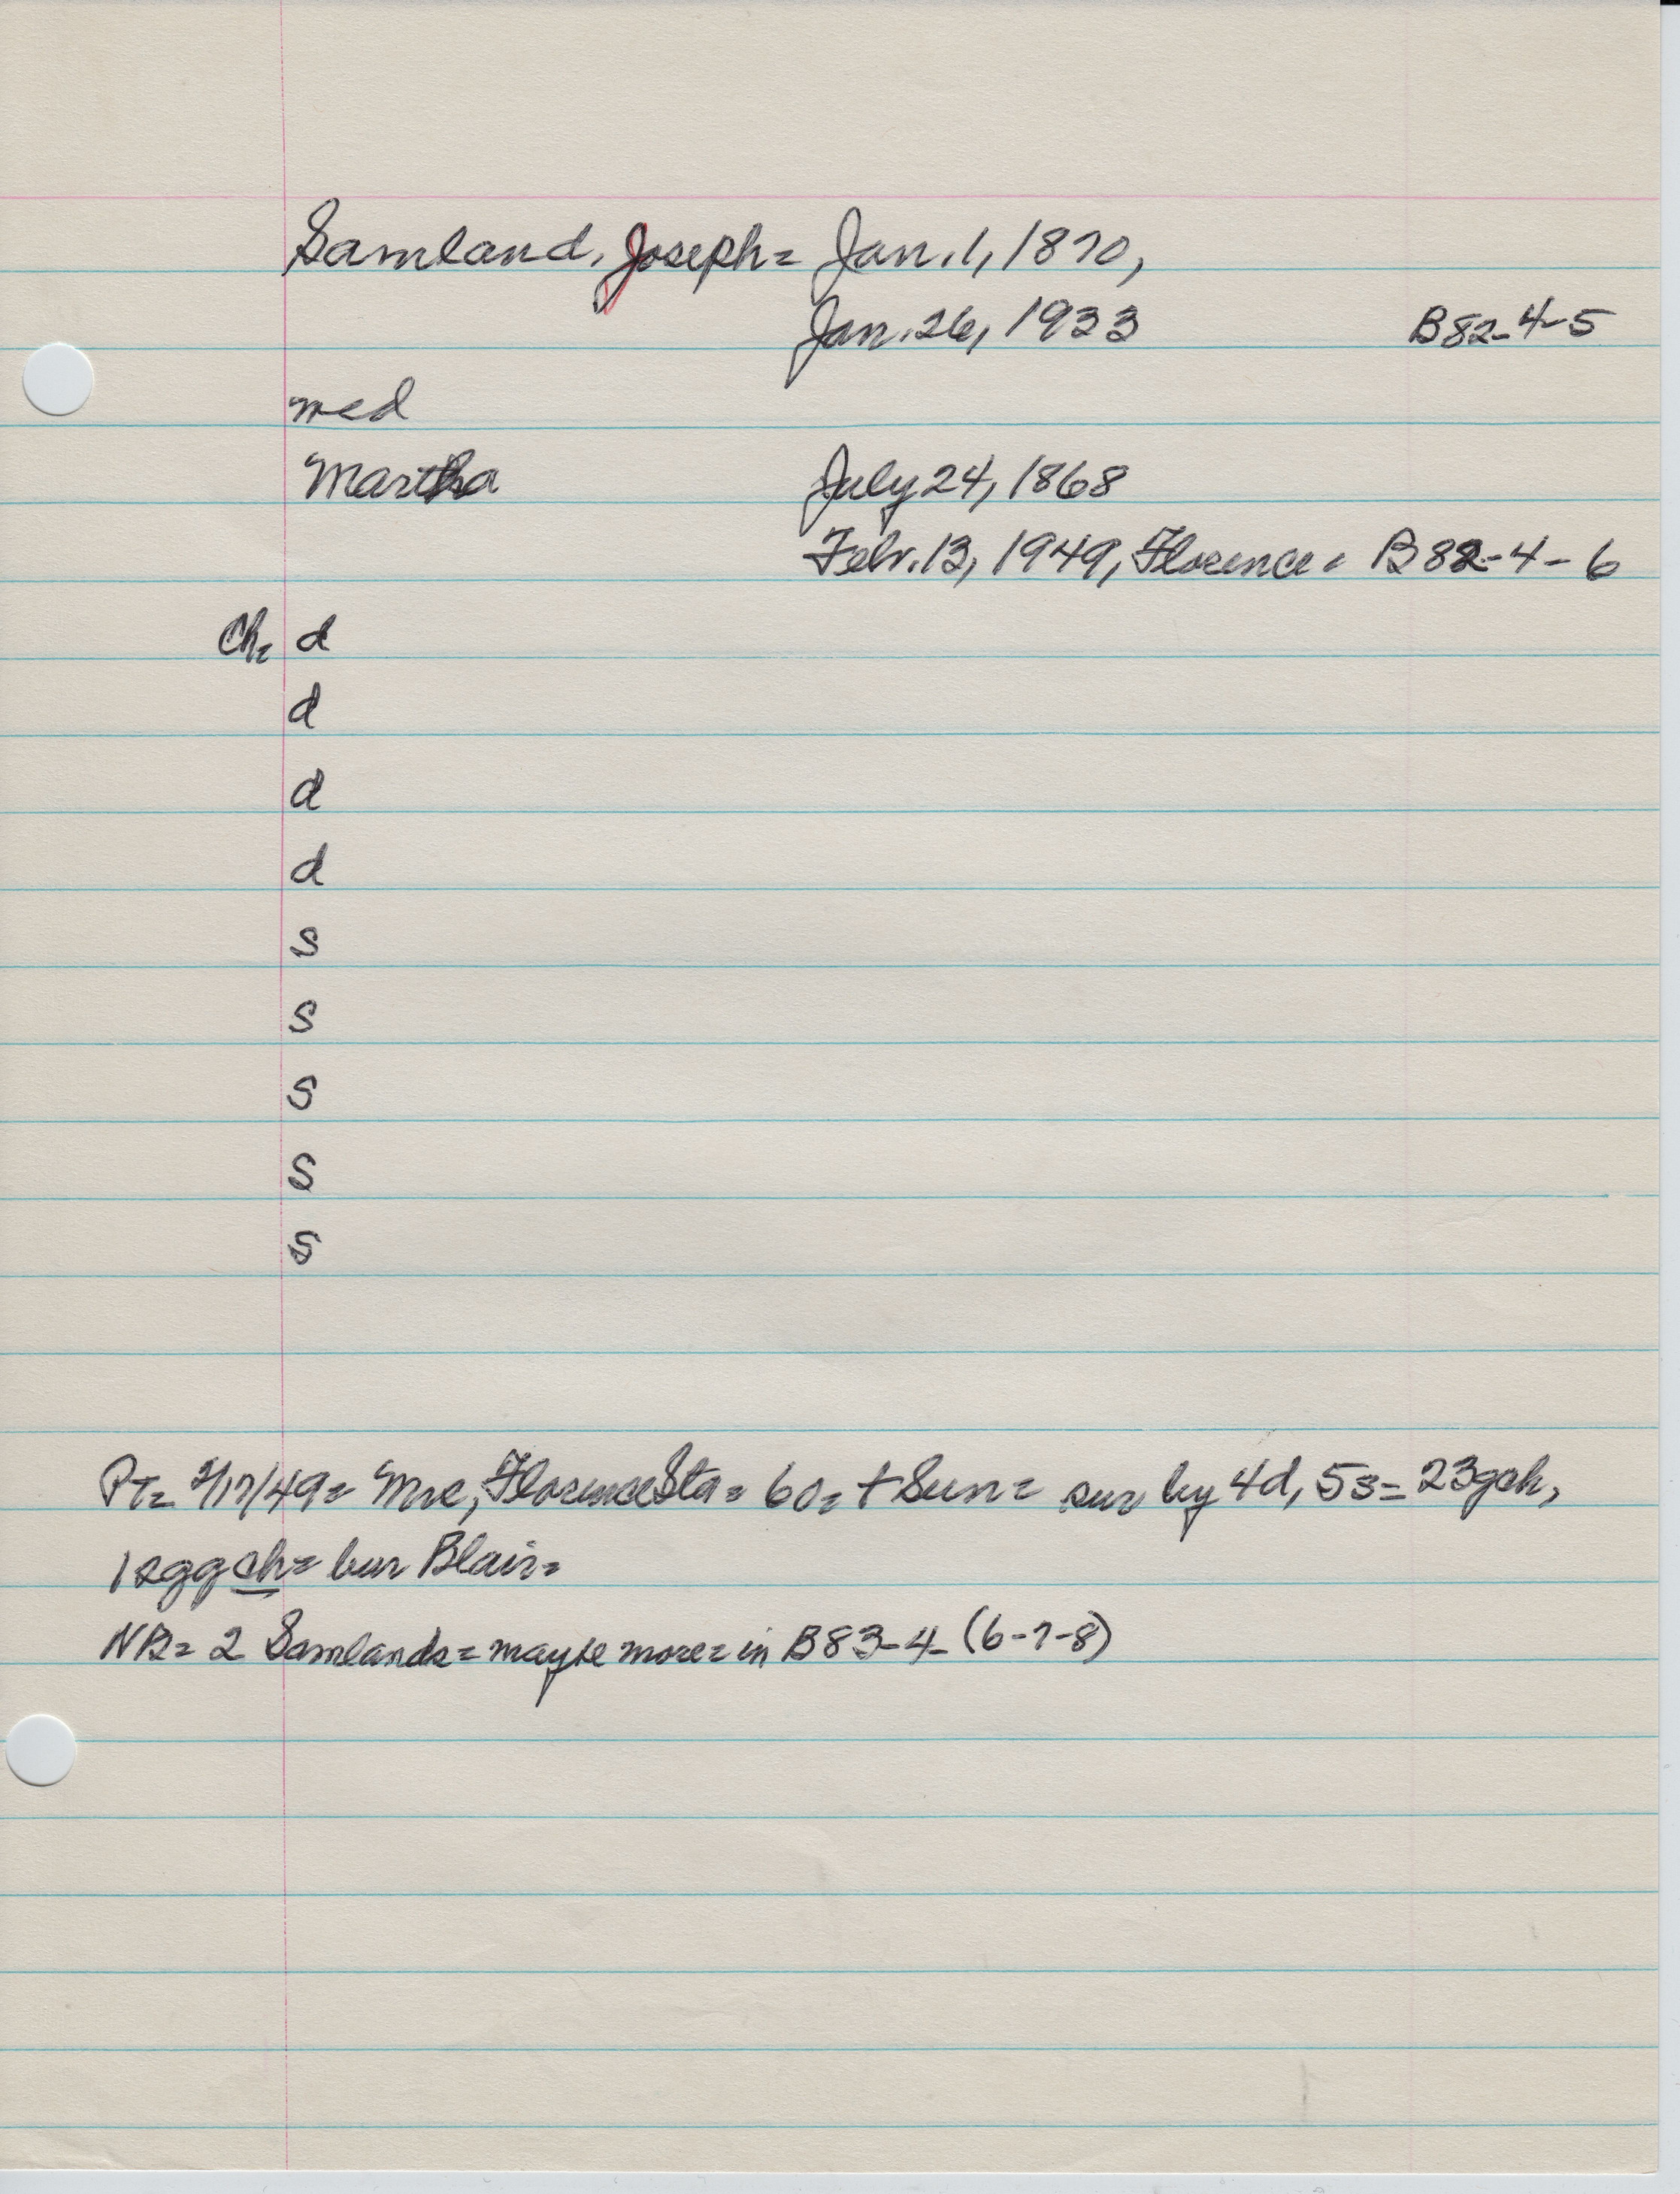 Samland, Joseph = Jan. 1, 1870,
Jan. 26, 1933 B82-4-5
med
Martha July 24, 1868
Febr. 13, 1949, Florence = B82-4-6
Ch = d
d
d
d
s
s
s
s
s
PT = 2/17/49 = Mrs, Florence Sta = 60 = + Sun = sur by 4d, 5s = 23gch,
12ggch = bur Blair =
NB = 2 Samlands = maybe more = in B83-4-(6-7-8)